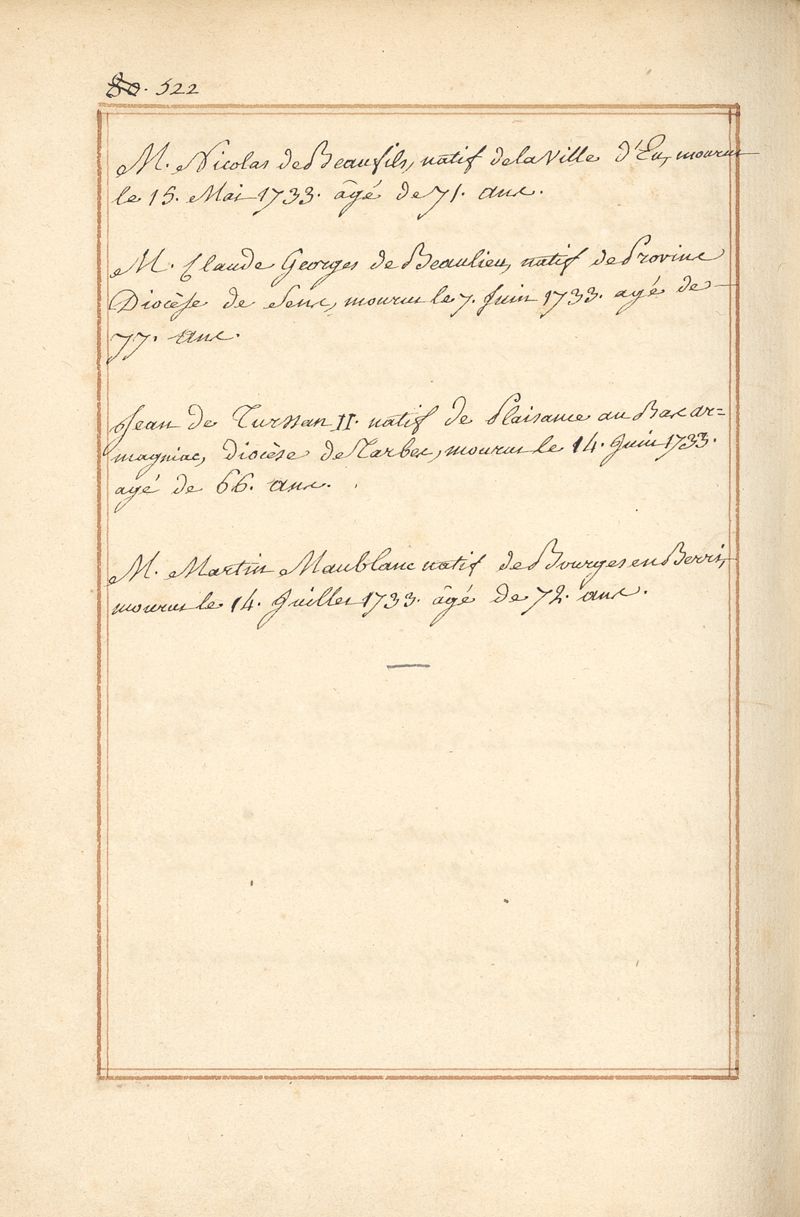 80. 522
M. Nicolas de Beaufils, natif de la Ville d'Eu, mourut
le 15. Mai 1733. âgé de 71. ans.
M. Claude Georges de Beaulieu, natif de Provins
Diocèse de Sens, mourut le 7. Juin 1733. agé de
77. ans.
Jean de Turssan II. natif de Plaisance au Bas ar=
magniac, diocèse de Tarbes, mourut le 14. Juin 1733.
agé de 66. ans.
M. Martin Maublanc natif de Bourges en Berri,
mourut le 14. Juillet 1733. âgé de 72. ans.